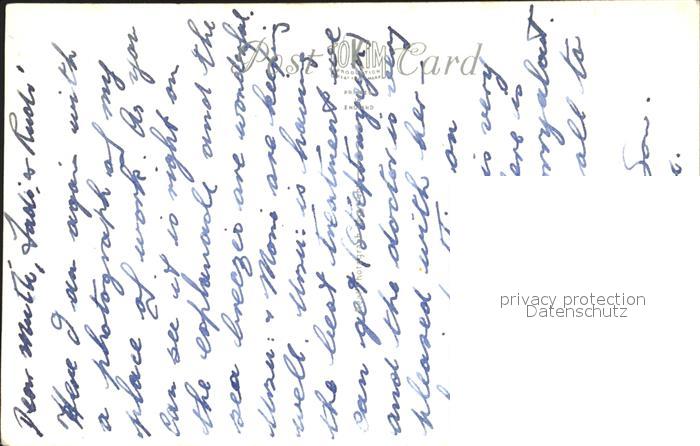 Post Card
TOKIM
PRODUCTION
Dear Muth, Ladi & Rudi,
Here I am again with
a photograph of my
place of work. As you
can see it is right on
the esplanade and the
sea breezes are wonderful.
are keeping
well. is having
the best treatment she
can get (streptomycin)
and the doctor is very
pleased with her
on
is very
is
all to
privacy protection
Datenschutz